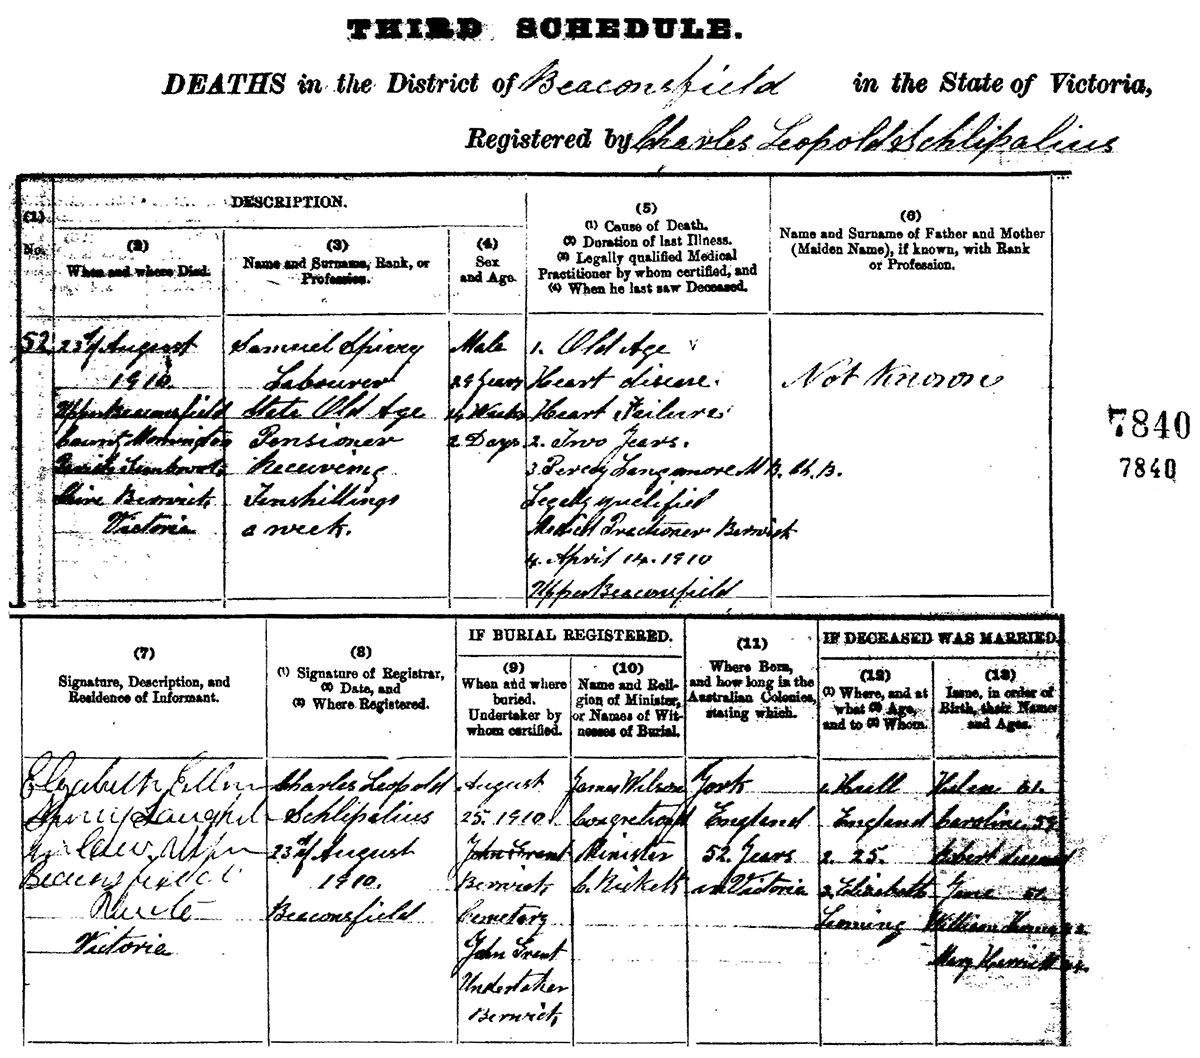 THIRD SCHEDULE.
DEATHS in the District of Beaconsfield in the State of Victoria,
Registered by Charles Leopold Schlipalius
DESCRIPTION.
(1)
No.
(2)
When and where Died.
(3)
Name and Surname, Rank, or
Profession.
(4)
Sex
and Age.
(5)
(1) Cause of Death.
(2) Duration of last Illness.
(3) Legally qualified Medical
Practitioner by whom certified, and
(4) When he last saw Deceased.
(6)
Name and Surname of Father and Mother
(Maiden Name), if known, with Rank
or Profession.
52
23rd August
1910.
Upper Beaconsfield
County Mornington
Shire Berwick
Victoria
Samuel Spivey
Labourer
State Old Age
Pensioner
Receiving
Tenshillings
a week.
Male
Years
4 Weeks
2 Days
1. Old Age
Heart disease.
Heart Failure
2. Two Years.
3 Percy Langmore M.B. Ch. B.
Legally qualified
Medical Practioner Berwick
4. April 14. 1910
Upper Beaconsfield
Not Known
7840
7840
(7)
Signature, Description, and
Residence of Informant.
(8)
(1) Signature of Registrar,
(2) Date, and
(3) Where Registered.
IF BURIAL REGISTERED.
(9)
When and where
buried.
Undertaker by
whom certified.
(10)
Name and Reli-
gion of Minister,
or Names of Wit-
nesses of Burial.
(11)
Where Born,
and how long in the
Australian Colonies,
stating which.
IF DECEASED WAS MARRIED.
(12)
(1) Where, and at
what (2) Age,
and to (3) Whom.
(13)
Issue, in order of
Birth, their Names
and Ages.
Elizabeth Ellen
Beaconsfield
Victoria
Charles Leopold
Schlipalius
23rd August
1910.
Beaconsfield
August
25. 1910.
John Grant
Berwick
Cemetary
John Grant
Undertaker
Berwick,
James Wilson
Minister
C. Rickett
York
England
52 Years
in Victoria
1 Hull
England
2. 25.
3 Elizabeth
Leming
Helen 61.
Caroline 59
Robert deceased
Jane 51.
William
Mary Harriett